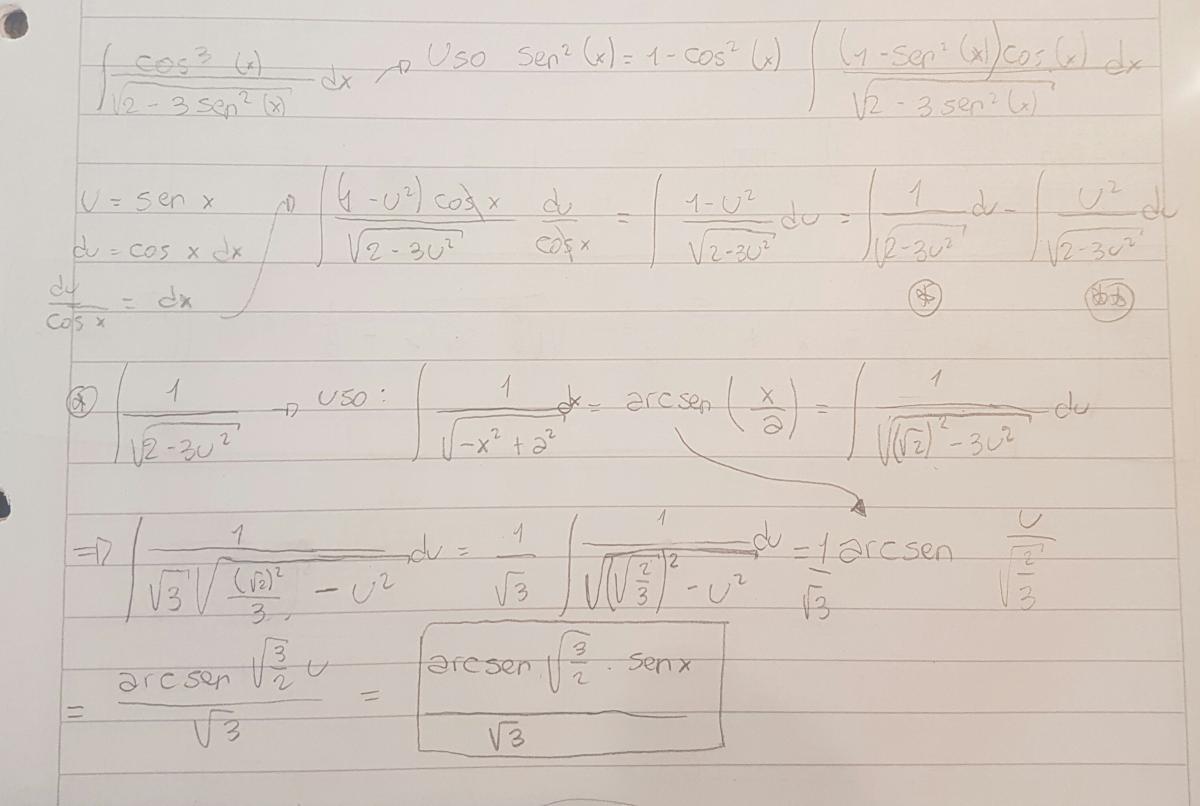 ∫ cos³(x) / √(2 - 3 sen²(x)) dx → Uso sen²(x) = 1 - cos²(x) ∫ (1 - sen²(x)) cos(x) / √(2 - 3 sen²(x)) dx
u = sen x → ∫ (1 - u²) cos x / √(2 - 3u²) du / cos x = ∫ 1 - u² / √(2 - 3u²) du = ∫ 1 / √(2 - 3u²) du - ∫ u² / √(2 - 3u²) du
du = cos x dx
du / cos x = dx
(*) (**)
(*) ∫ 1 / √(2 - 3u²) → uso: ∫ 1 / √(-x² + a²) dx = arcsen (x / a) = ∫ 1 / √((√2)² - 3u²) du
⇒ ∫ 1 / √3 √((√2)² / 3 - u²) du = 1 / √3 ∫ 1 / √((√(2/3))² - u²) du = 1 / √3 arcsen u / √(2/3)
= arcsen √(3/2) u / √3 = arcsen √(3/2) · sen x / √3